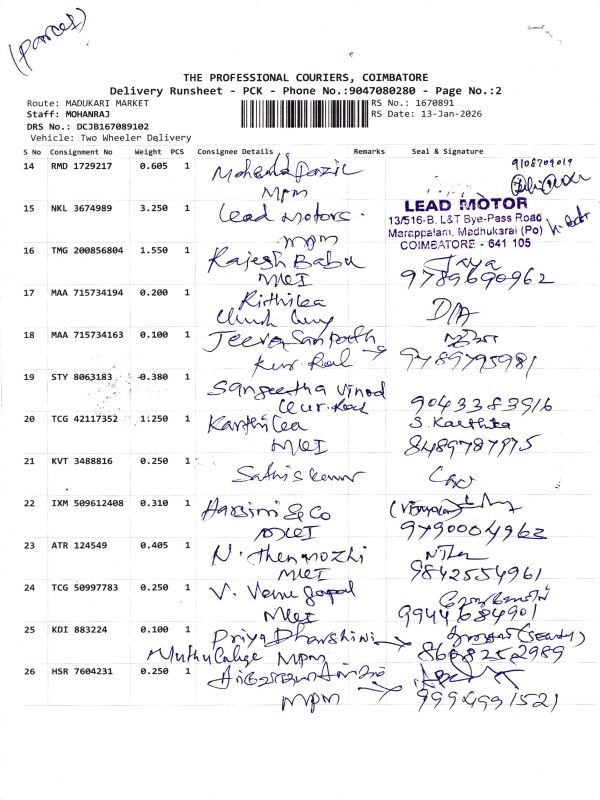 (Parcel)
THE PROFESSIONAL COURIERS, COIMBATORE
Delivery Runsheet - PCK - Phone No.:9047080280 - Page No.:2
Route: MADUKARI MARKET RS No.: 1670891
Staff: MOHANRAJ RS Date: 13-Jan-2026
DRS No.: DCJB167089102
Vehicle: Two Wheeler Delivery
S No Consignment No Weight PCS Consignee Details Remarks Seal & Signature
14 RMD 1729217 0.605 1 9108709019
MPM
15 NKL 3674989 3.250 1 Lead Motors. LEAD MOTOR
13/516-B, L&T Bye-Pass Road
Marappalam, Madhukarai (Po)
mpm COIMBATORE - 641 105
16 TMG 200856804 1.550 1 Rajesh Babu Jaya
MKI 9789690962
17 MAA 715734194 0.200 1 Rithika D/A
18 MAA 715734163 0.100 1 Jeeva Sampath
Kur Road 9489795981
19 STY 8063183 0.380 1 Sangeetha Vinod
Kur. Road 9043383916
20 TCG 42117352 1.250 1 Karthika S. Karthika
MKI 8489787975
21 KVT 3488816 0.250 1 Sathiskumar
22 IXM 509612408 0.310 1 Harsini & Co
MKI 9790004962
23 ATR 124549 0.405 1 N. Thenmozhi N.Then
MKI 9842554961
24 TCG 50997783 0.250 1 V. Venu gopal
MKI 9944684901
25 KDI 883224 0.100 1 Priya Dharshini
MPM 8668252989
26 HSR 7604231 0.250 1
MPM 9994991521